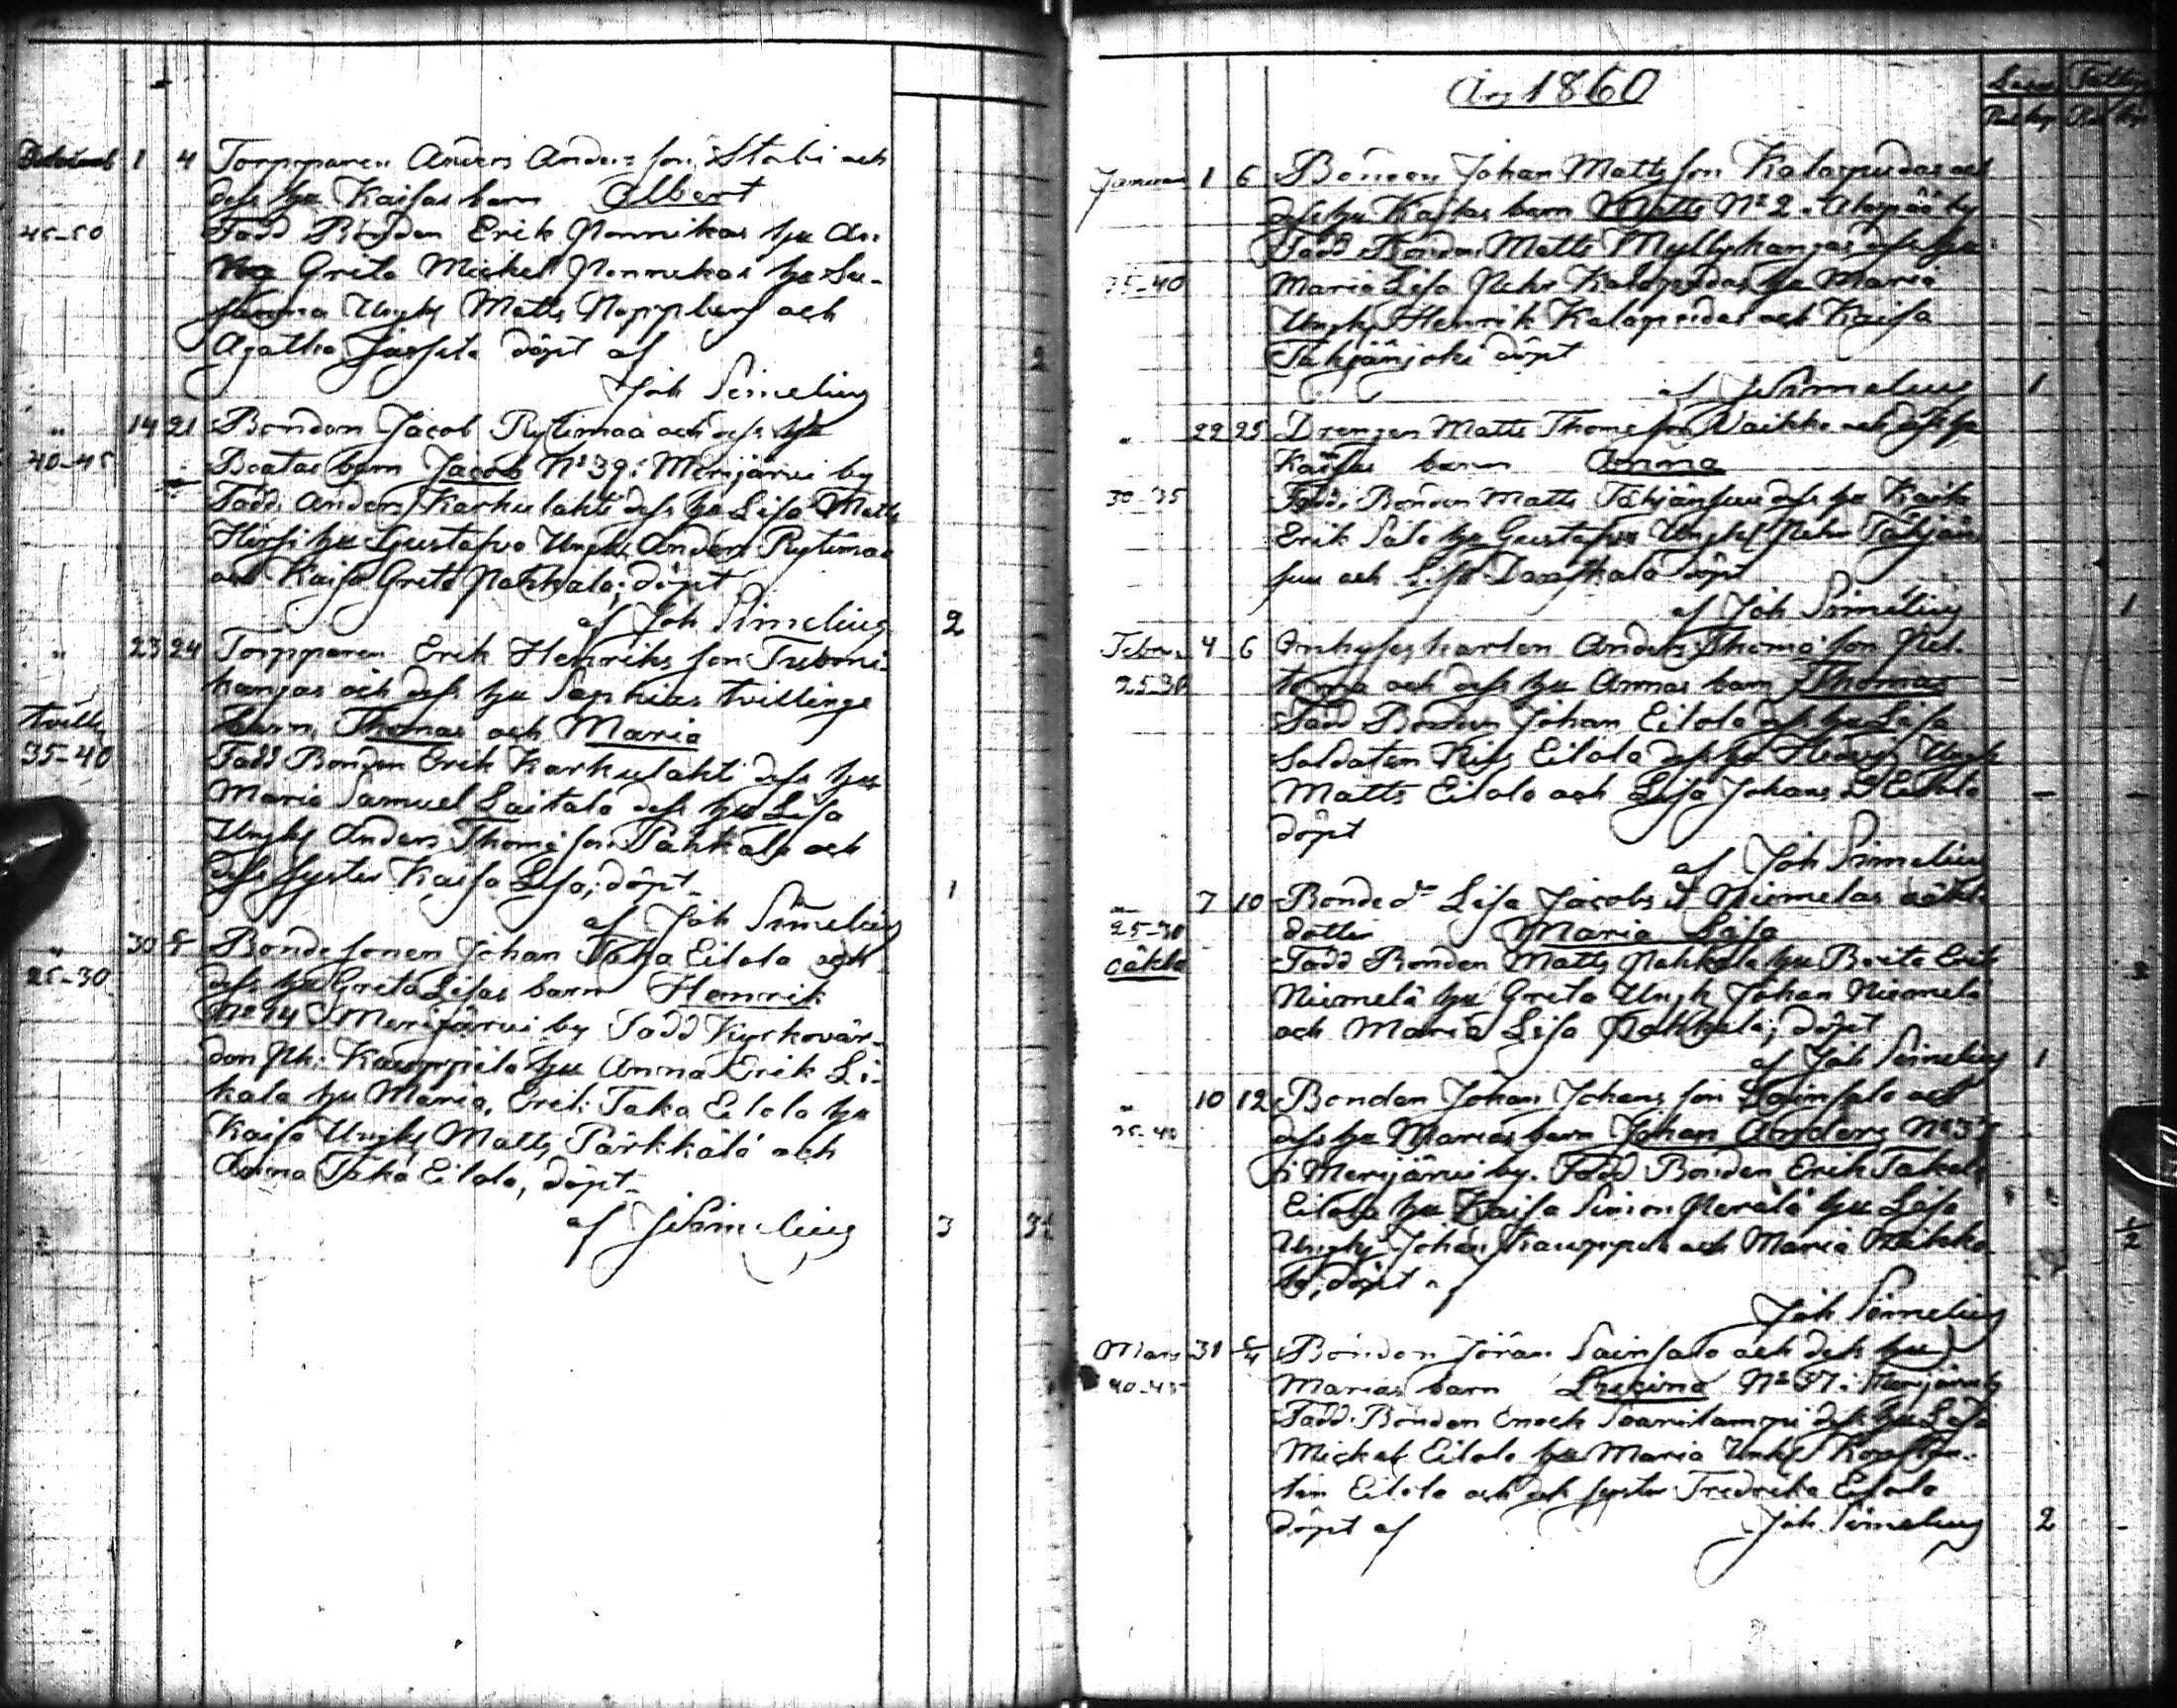 December 1 4 Torpparen Anders Anders son Stolri och
dess hu Kaisas barn Albert
45-50 Fadd Bonden Erik Nonnikas hu An-
na Greta Mickel Nonnikas hu Su-
sanna Ungk Matts Nopplberg och
Agatha döpt af 2
Joh Simelius
" 14 21 Bonden Jacob Rytimaa och dess hu
40-45 Beatas barn Jacob No 39 i Merijärvi by
Fadd. Anders Karhulahti dess hu Lisa Matts
Hirsi hu Gustafva Ungk. Anders Rytimaa
och Kaisa Greta Pahkala; döpt
af Joh Simelius 2
" 23 24 Torpparen Erik Henriks son
kangas och dess hu Sophias tvillinge
tvill barn Thomas och Maria
35-40 Fadd Bonden Erik Karhulahti dess hu
Maria Samuel Laitala dess hu Lisa
Ungk Anders Thomæ son Pahkala och
dess syster Kaisa Lisa; döpt 1
af Joh Simelius
" 30 Bondesonen Johan Taka Eilola och
25-30 dess hu Greta Lisas barn Henrik
No 14 i Merijärvi by Fadd Kyrkovär-
den Kauppila hu Anna Erik Li-
kala hu Maria, Erik Taka Eilola hu
Kaisa Ungk Matts Pärkkälä och
Anna Taka Eilola, döpt
af J Simelius 3
År 1860
Januari 1 6 Bonden Johan Matts son Kalapudas och
dess hu Kaisas barn Matts No 2 i by
Fadd Bonden Matts Myllykangas dess hu
35-40 Maria Lisa Pehr Kalapudas hu Maria
Ungk Henrik Kalapudas och Kaisa
Tähjänjoki döpt
af J Simelius 1
" 22 25 Drengen Matts Thomæ son Waikko och dess hu
Kaisas barn Anna
30-35 Fadd. Bonden Matts Tähjänsuu dess hu Kaisa
Erik Salo hu Gustafva Ungk Pehr Tähjän
suu och Lisa döpt
af Joh Simelius 1
Febru. 4 6 Inhyseskarlen Anders Thomæ son
25-30 och dess hu Annas barn Thomas
Fadd Bonden Johan Eilola dess hu Lisa
Soldaten Eilola dess hu Ungk
Matts Eilola och Lisa Johans D Eilola
döpt
af Joh Simelius
" 7 10 Bonded:r Lisa Jacobs d Niemelas oäkta
25-30 dotter Maria Lisa
oäkta Fadd Bonden Matts Pahkala hu Brita Erik
Niemelä hu Greta Ungk Johan Niemelä
och Maria Lisa Pahkala; döpt
af Joh Simelius 1
" 10 12 Bonden Johan Johans son Sainsalo och
35-40 dess hu Marias barn Johan Anders No 37
i Merijärvi by. Fadd Bonden Erik Taka
Eilola hu Kaisa Simon Perälä hu Lisa
Ungk Johan Kauppila och Maria
döpt af
Joh Simelius
Mars 31 Bonden Jöran Sainsalo och dess hu
40-45 Marias barn No 37 i Merijärvi by
Fadd. Bonden Enoch Saarilampi dess hu Lisa
Mickel Eilola hu Maria Ungk Konstan-
tin Eilola och dess syster Fredrika Eilola
döpt af Joh Simelius 2